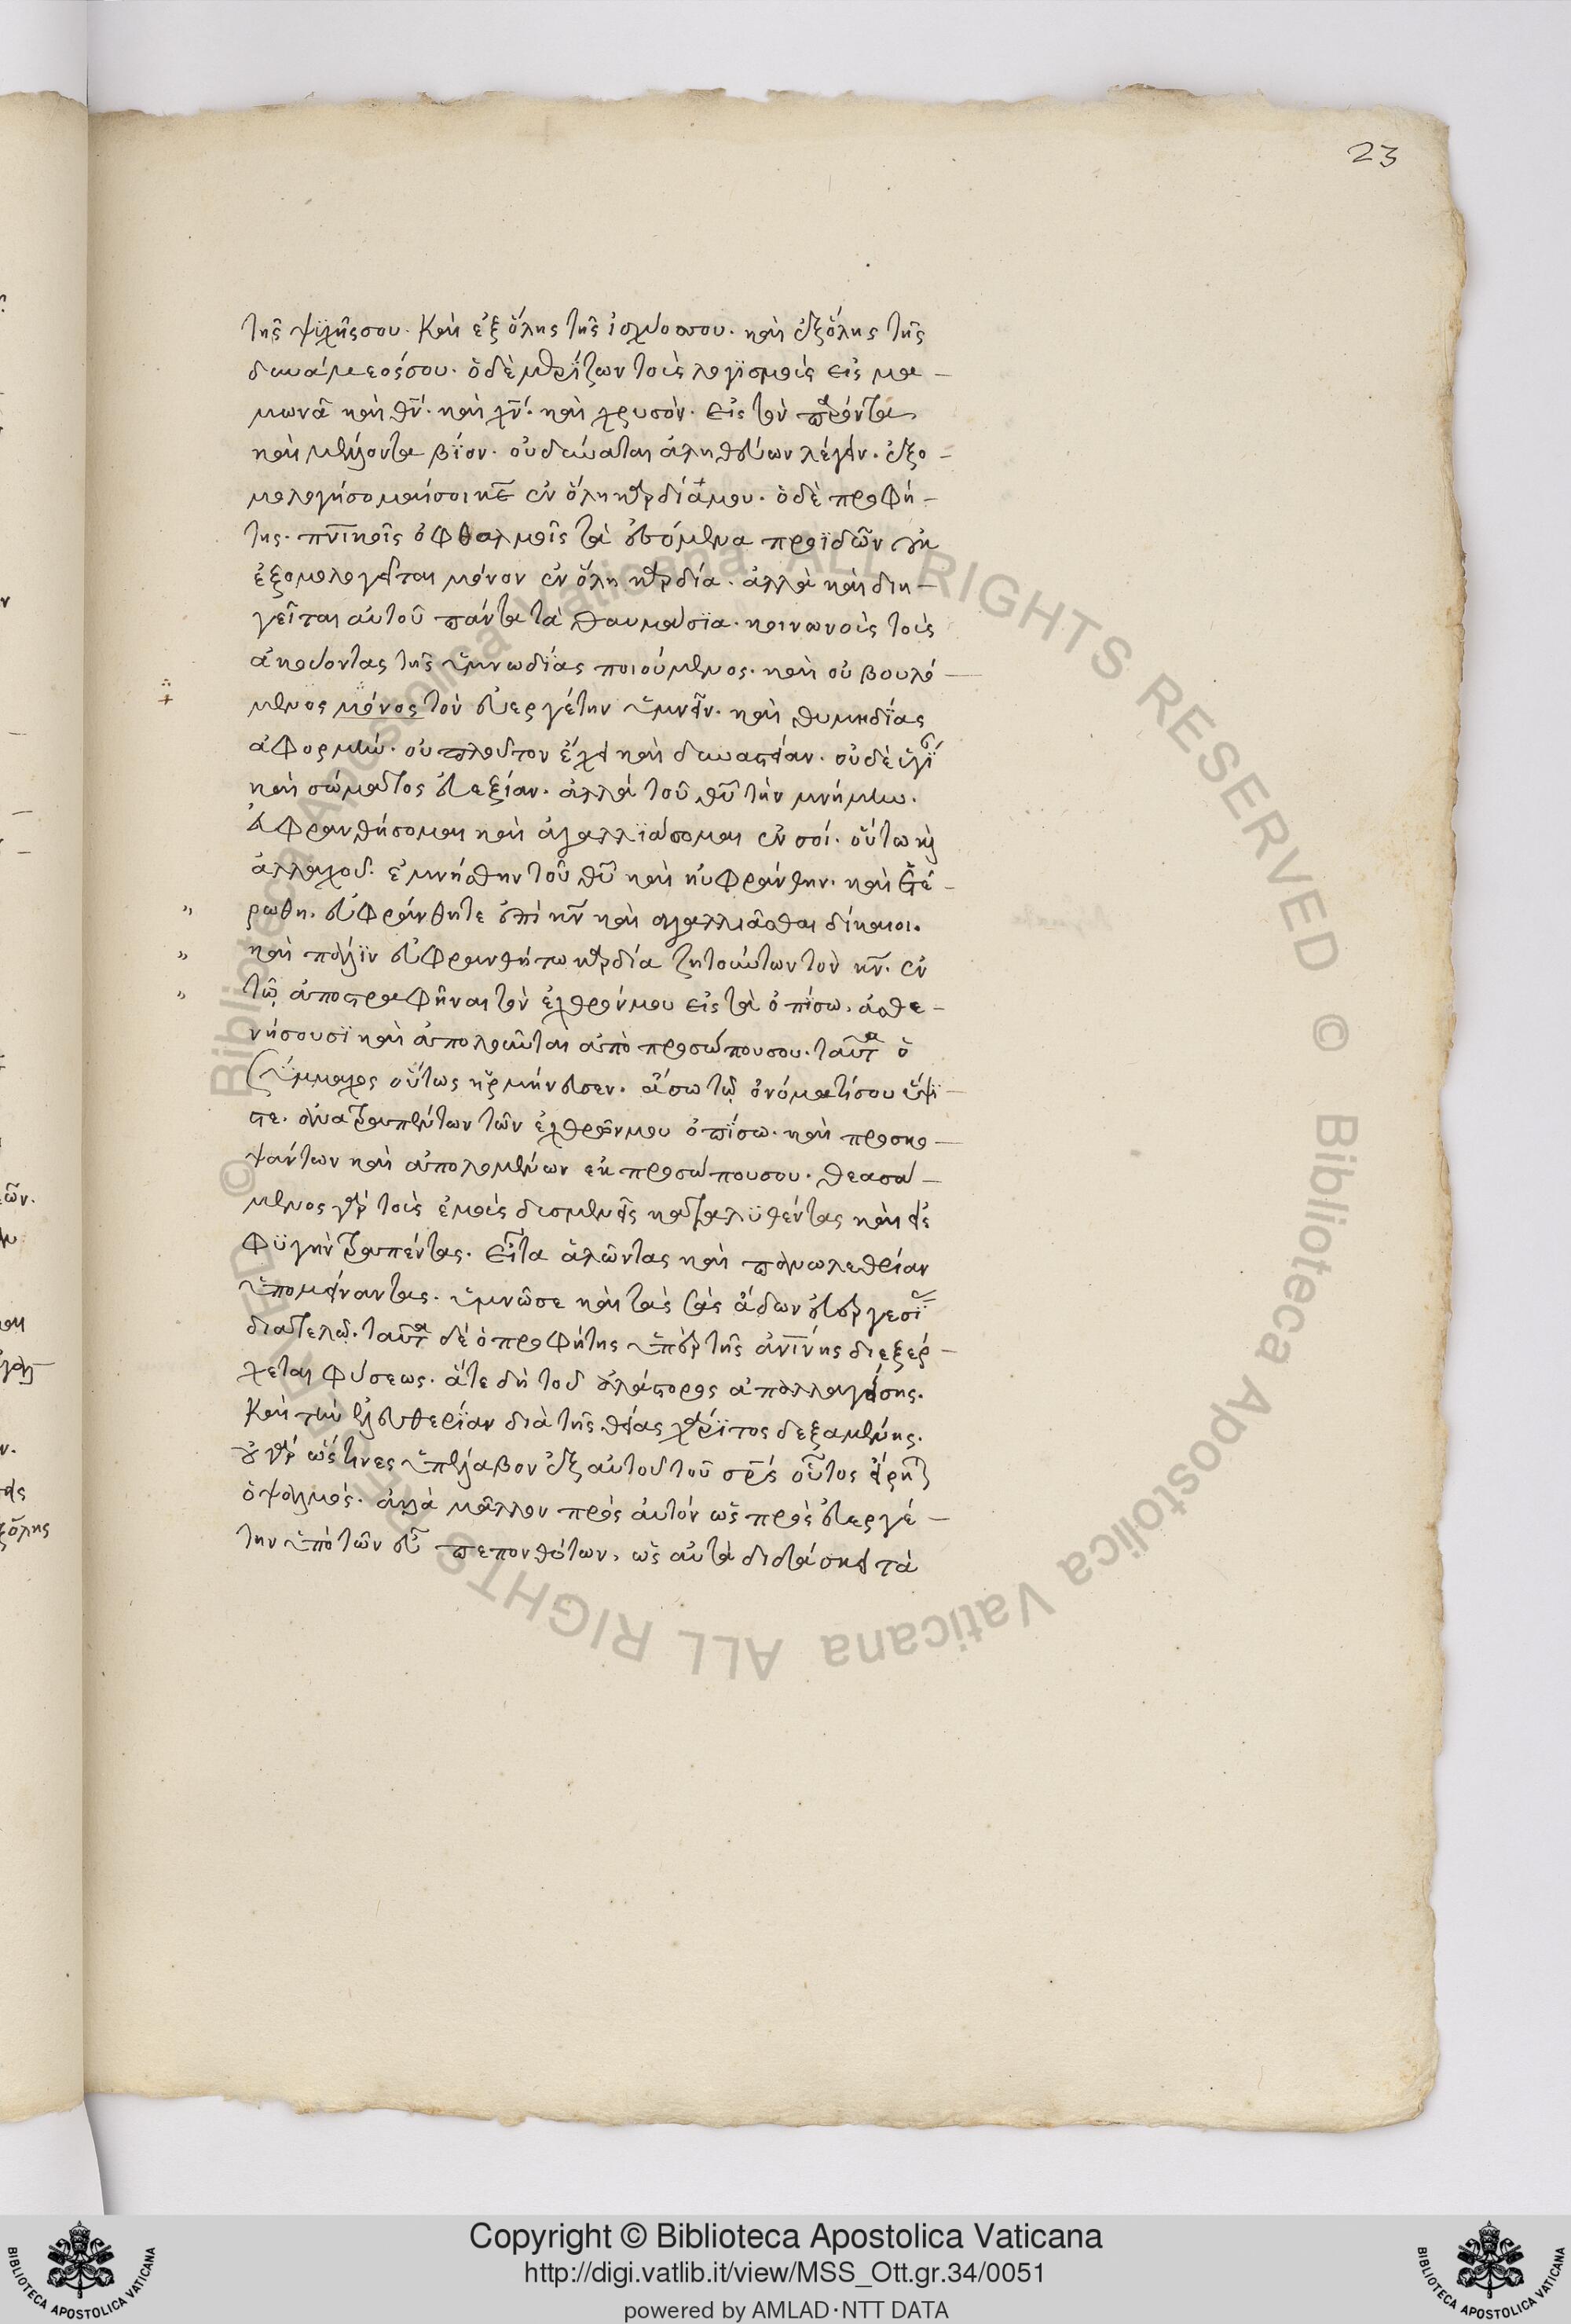 23
τῆς ψϊχῆς σου. Καὶ ἐξ ὅλης τῆς ἰσχύος σου. καὶ ἐξ ὅλης τῆς
δυνάμεος σου. ὁ δὲ μερίζων τοῖς λογϊσμοῖς εἰς μα-
μωνᾶ καὶ θν̅. καὶ χν̅. καὶ χρυσὸν. εἰς τὸν παρόντα
καὶ μέλλοντα βίον. οὐ δύναται ἀληθεύων λέγειν. ἐξο-
μολογήσομαί σοι κε̅ ἐν ὅλη καρδία μου. ὁ δὲ προφή-
της. πνϊ̅κοῖς ὀφθαλμοῖς τὰ ἐσόμενα προϊδῶν οὐκ
ἐξομολογεῖται μόνον ἐν ὅλη καρδία. ἀλλὰ καὶ διη-
γεῖται αὐτοῦ πάντα τὰ θαυμάσϊα. κοινωνοὶς τοὶς
ἀκούοντας τῆς ὑμνωδίας ποιούμενος. καὶ οὐ βουλό-
μενος μόνος τὸν εὐεργέτην ὑμνεῖν. καὶ θυμηδίας
ἀφορμὴν. οὐ πλοῦτον ἔχει καὶ δυναστείαν. οὐδὲ
καὶ σώματος εὐεξίαν. ἀλλὰ τοῦ θυ̅ τὴν μνήμην.
εὐφρανθήσομαι καὶ ἀγαλλϊάσομαι ἐν σοί. οὕτω κ
ἀλλαχοῦ. ἐμνήσθην τοῦ θυ̅ καὶ ηὐφράνθην. καὶ ἑτέ-
ρωθη. εὐφράνθητε ἐπὶ κν̅ καὶ ἀγαλλιᾶσθαι δίκαιοι.
καὶ πάλϊν εὐφρανθήτω καρδία ζητούντων τὸν κν̅. ἐν
τῶ ἀποστραφῆναι τὸν ἐχθρόν μου εἰς τὰ ὀπίσω. ἀσθε-
νήσουσϊ καὶ ἀπολοῦνται ἀπὸ προσώπου σου. ταῦτα ὁ
Σύμμαχος οὕτως ἡρμήνευσεν. ἄσω τῶ ὀνόματί σου ὕψϊ-
στε. ἀνατραπέντων τῶν ἐχθρῶν μου ὀπίσω. καὶ προσκο-
ψάντων καὶ ἀπολομένων ἐκ προσώπου σου. θεασά-
μενος γὰρ τοὶς ἐμοὶς δυσμενεῖς καταλϋθέντας καὶ εἰς
φϋγὴν τραπέντας. εἶτα ἁλῶντας καὶ πανωλεθρίαν
ὑπομείναντας. ὑμνῶ σε καὶ τὰς σὰς ἄδων εὐεργεσΐ
διατελῶ. ταῦτα δὲ ὁ προφήτης ὑπὲρ τῆς ἀνϊ̅νης διεξέρ-
χεται φύσεως. ἅτε δὴ τοῦ ἀλάστορος ἀπαλλαγείσης.
Καὶ τὴν ἐλευθερίαν διὰ τῆς θείας χάρϊτος δεξαμένης.
οὐ γὰρ ὥς τινες ὑπέλαβον ἐξ αὐτοῦ τοῦ σρ̅ς οὗτος εἴρηται
ὁ ψαλμός. ἀλλὰ μᾶλλον πρὸς αὐτὸν ὡς πρὸς εὐεργέ-
την ὑπὸ τῶν εὖ πεπονθότων. ὡς αὐτὰ διδάσκει τὰ
Copyright © Biblioteca Apostolica Vaticana
http://digi.vatlib.it/view/MSS_Ott.gr.34/0051
powered by AMLAD·NTT DATA